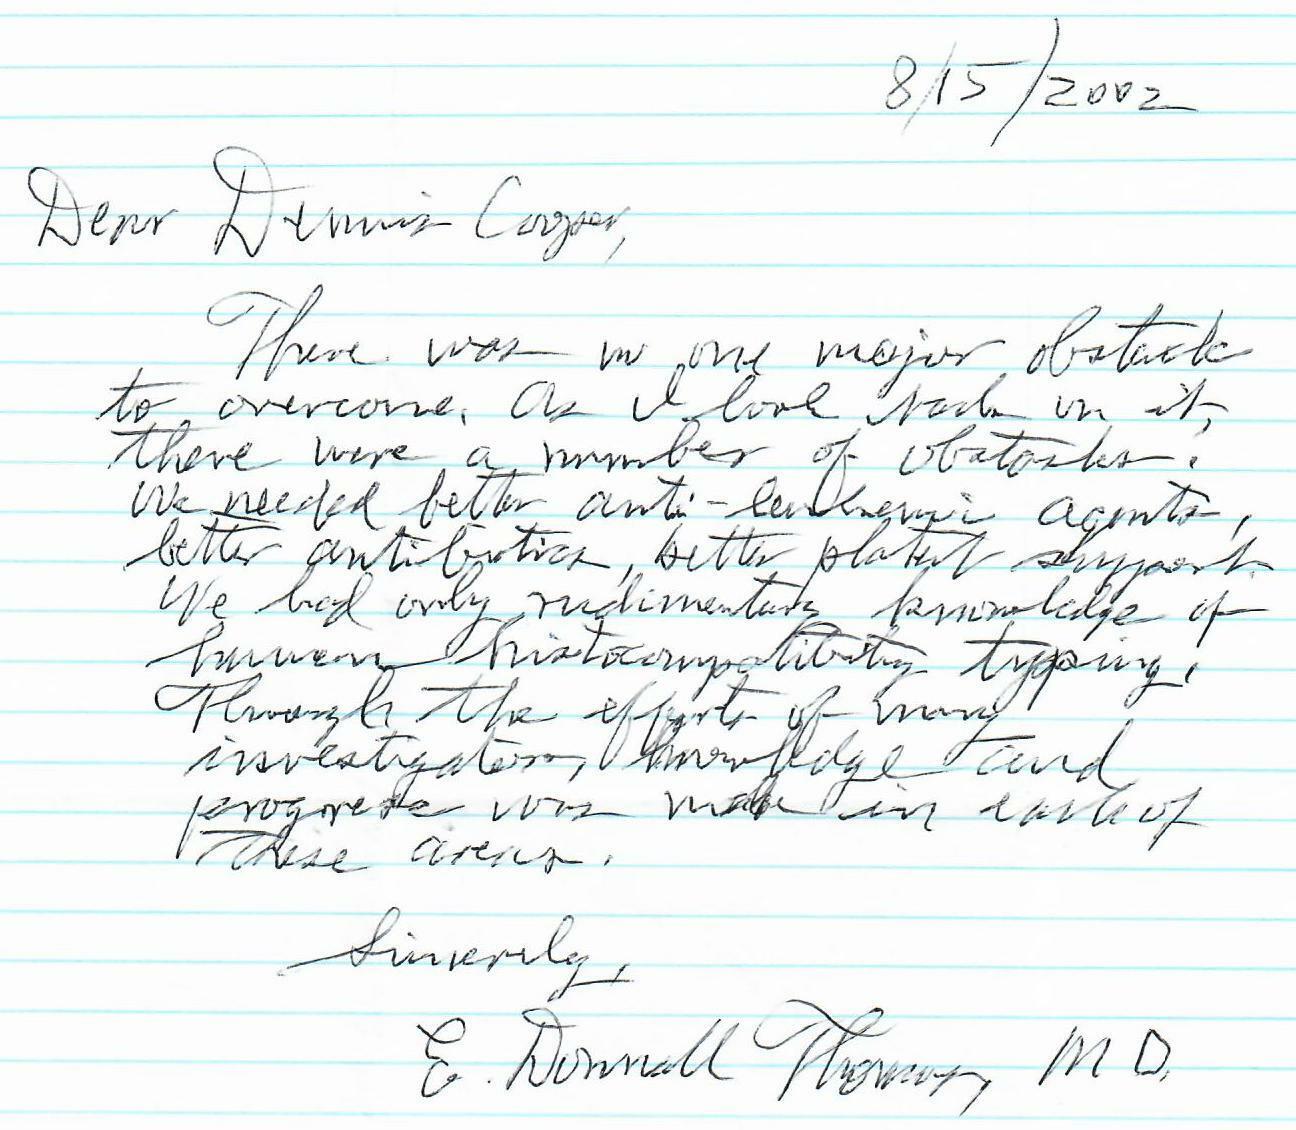 8/15/2002
Dear Dennis Cooper,
There was no one major obstacle
to overcome. As I look back on it,
there were a number of obstacles.
We needed better anti-leukemic agents,
better antibiotics, better platelet support.
We had only rudimentary knowledge of
human histocompatibility typing.
Through the efforts of many
investigators, knowledge and
progress was made in each of
these areas.
Sincerely,
E. Donnall Thomas, MD.